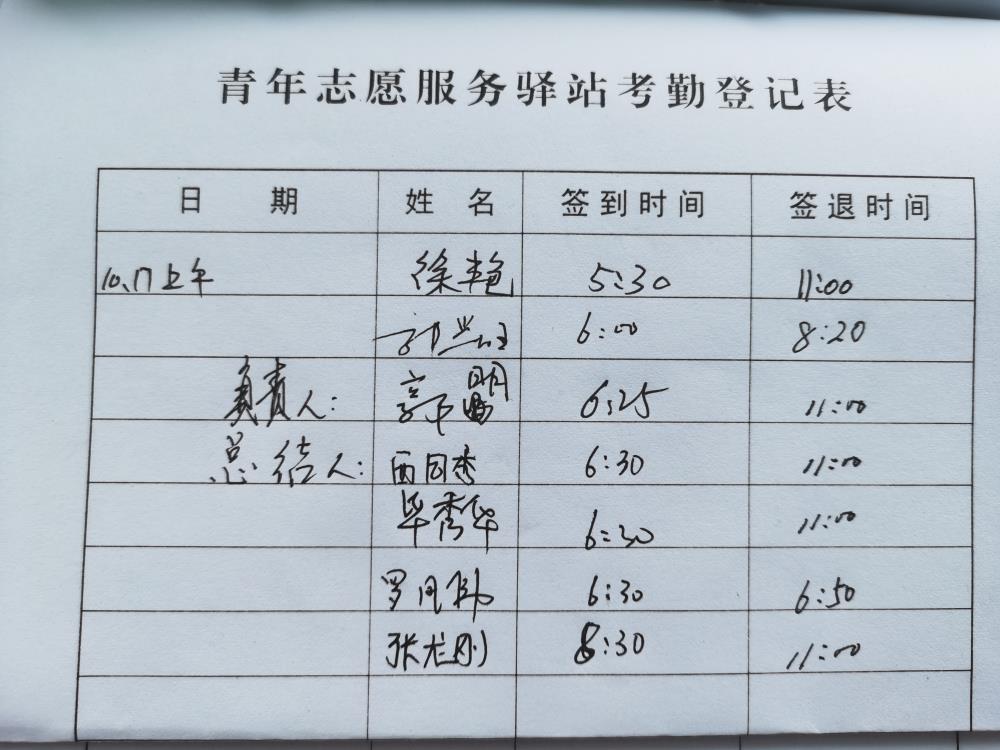 青年志愿服务驿站考勤登记表
日 期 姓 名 签到时间 签退时间
10、17上午 徐艳 5:30 11:00
6:00 8:20
负责人: 郭 6:25 11:00
总结人: 西同秀 6:30 11:00
毕秀华 6:30 11:00
罗 6:30 6:50
张龙刚 8:30 11:00